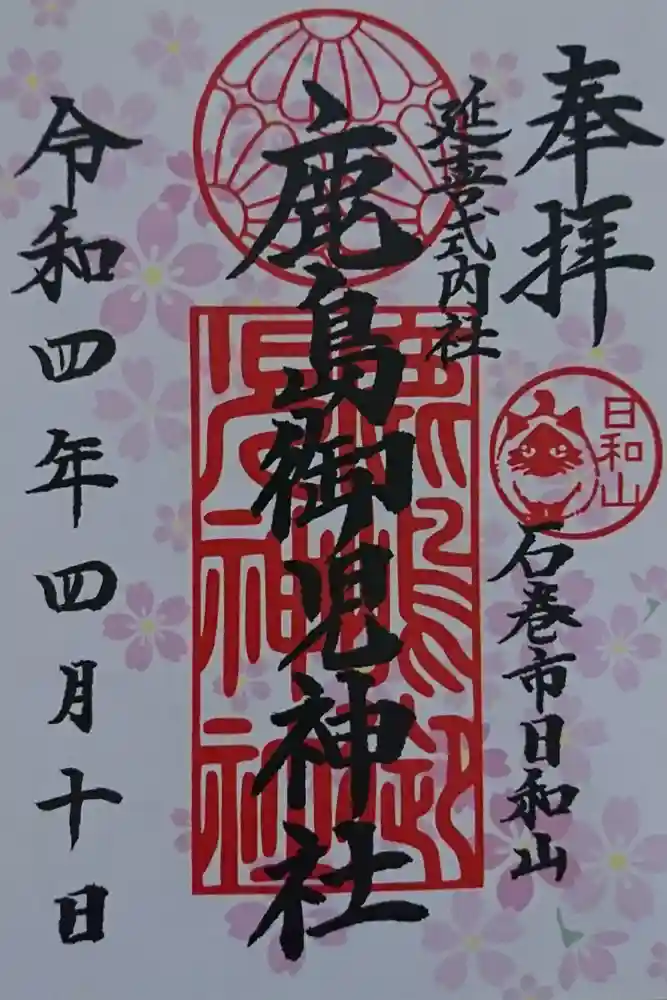 奉拝
日和山
石巻市日和山
延喜式内社
鹿島御児神社
鹿島御児神社
令和四年四月十日